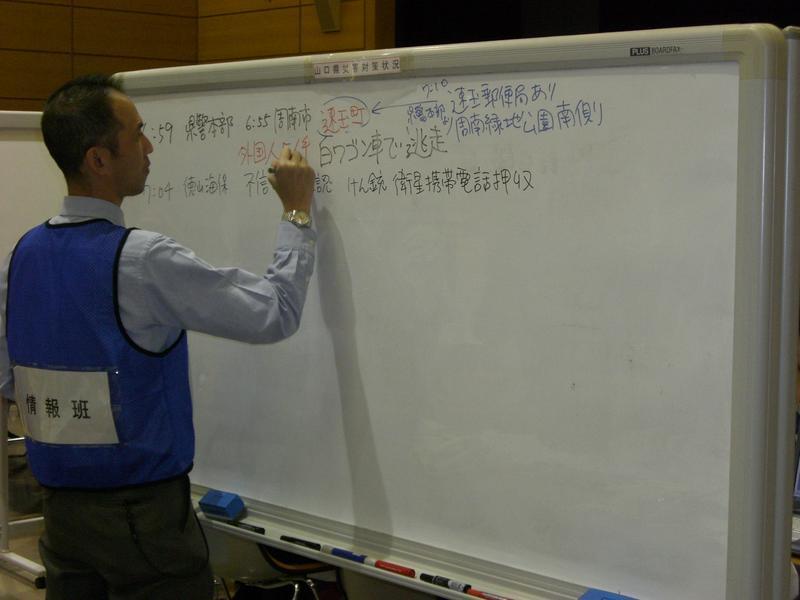 PLUS BOARDFAX
山口県災害対策状況
7:10 遠玉郵便局あり
:59 県警本部 6:55 周南市 遠玉町 県警本部より 周南緑地公園南側り
外国人 白ワゴン車で逃走
7:04 徳山海保 不信 認 けん銃 衛星携帯電話押収
情報班